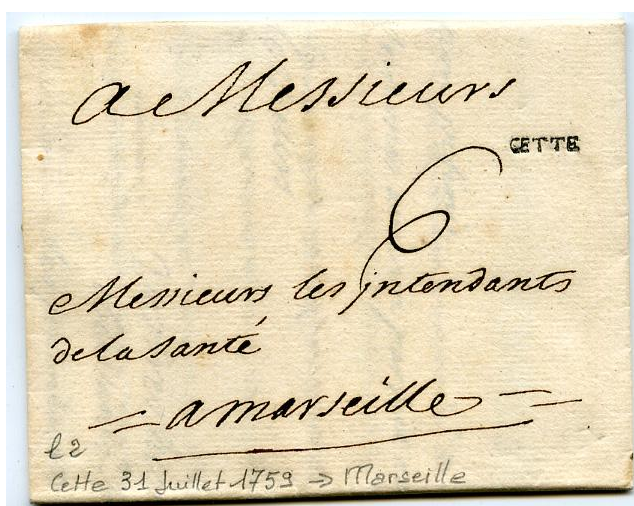 a Messieurs
CETTE
6
Messieurs les intendants
de la santé
a marseille
l2
Cette 31 Juillet 1759 → Marseille